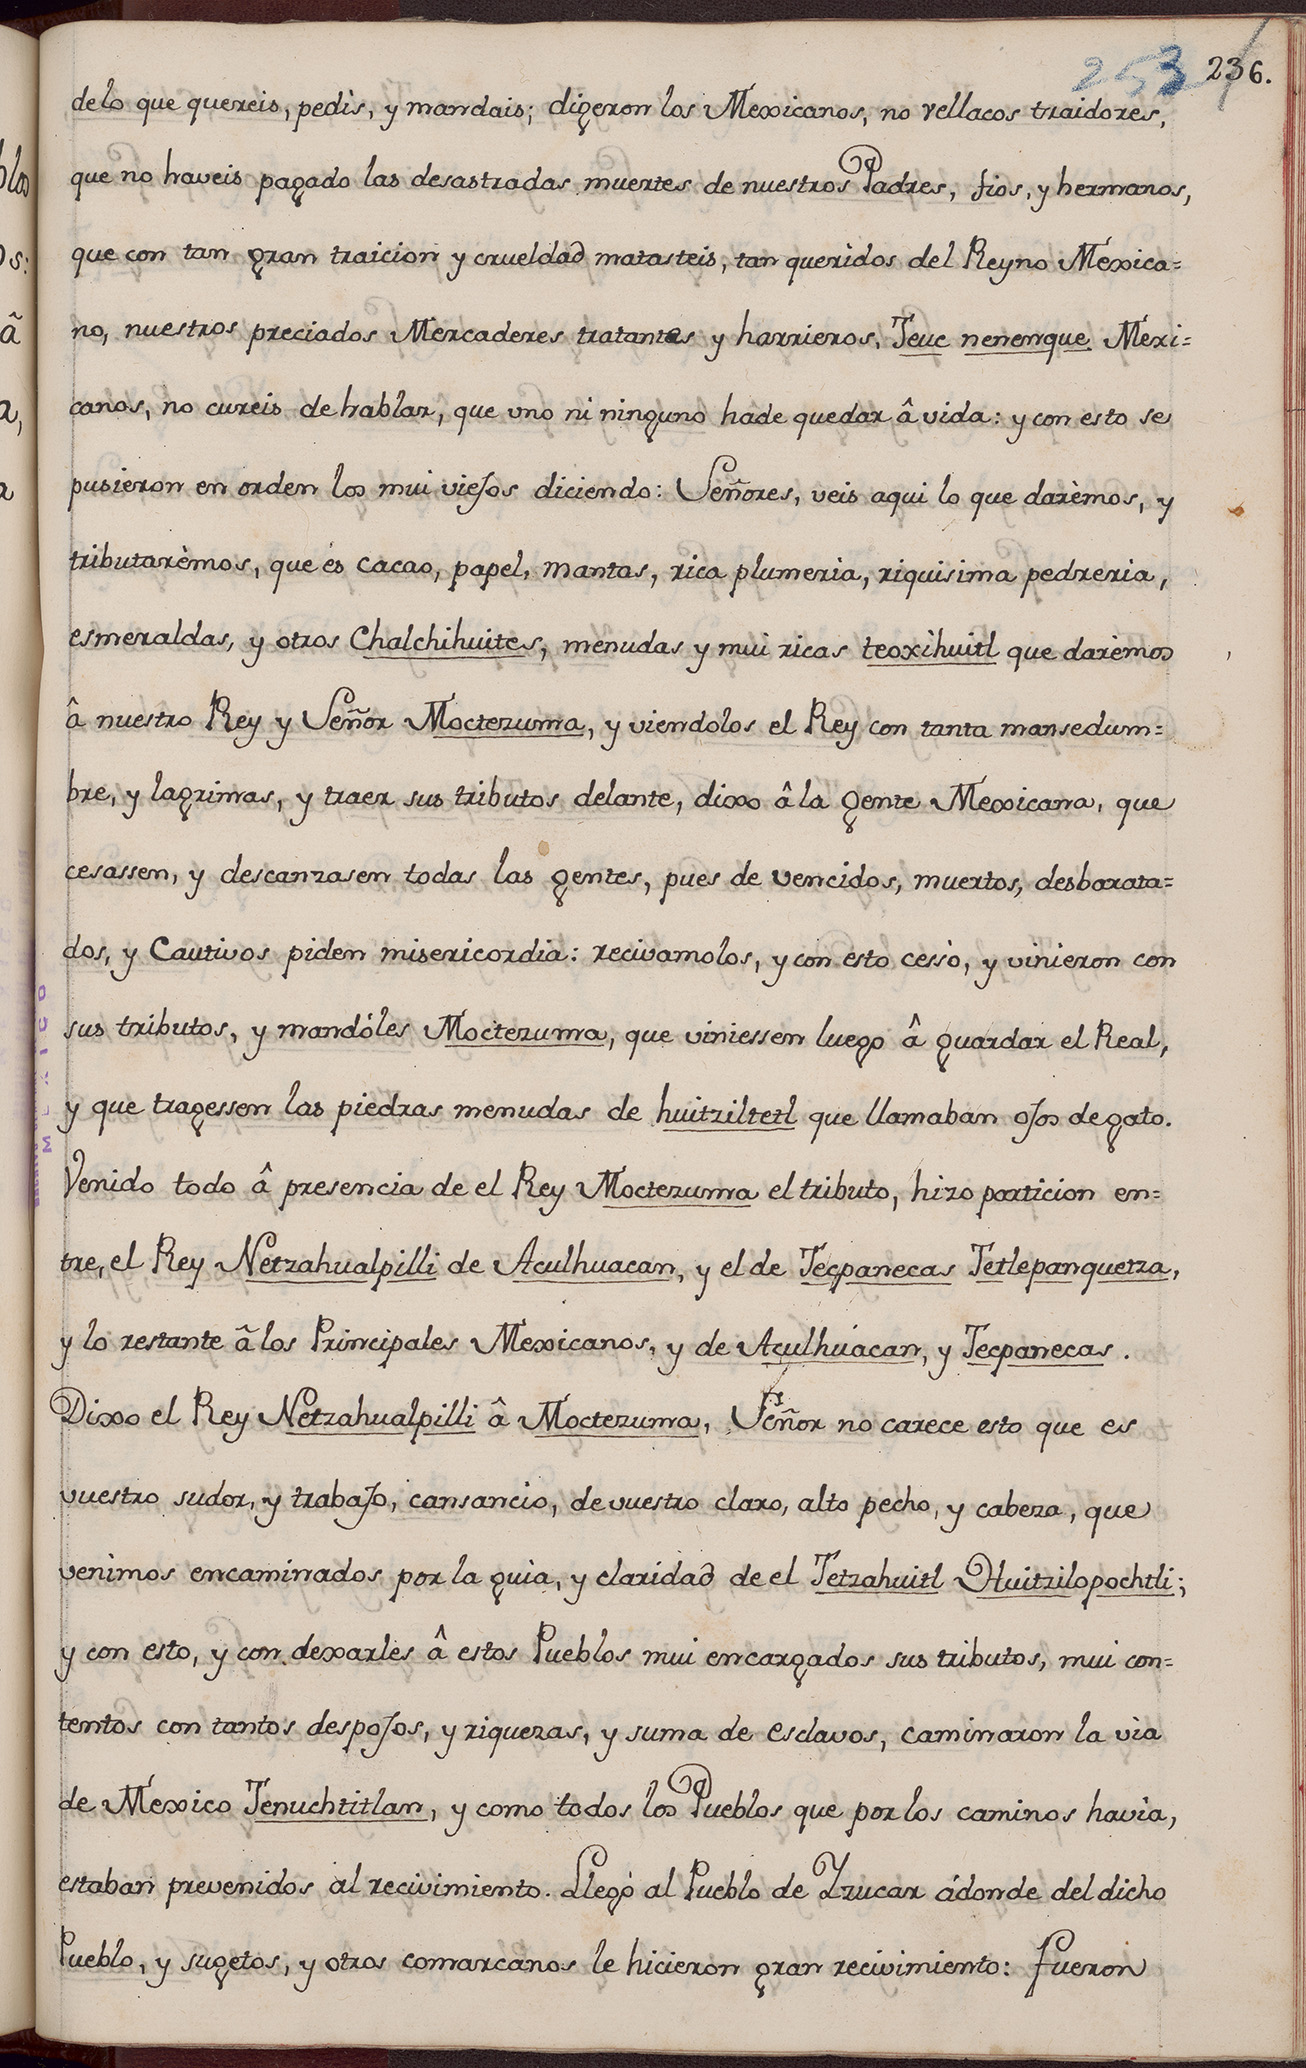 253 236.
delo que quereis, pedìs, y mandais; digeron los Mexicanos, no vellacos traidores,
que no haveis pagado las desastradas muertes de nuestros Padres, tios, y hermanos,
que con tan gran traicion y crueldad matasteis, tan queridos del Reyno Mexica=
no, nuestros preciados Mercaderes tratantes y harrieros, Teuc nenenque Mexi=
canos, no cureis de hablar, que vno ni ninguno hade quedar â vida: y con esto se
pusieron en orden los mui viejos diciendo: Señores, veis aqui lo que darèmos, y
tributarèmos, que es cacao, papel, mantas, rica plumeria, riquisima pedreria,
esmeraldas, y otros Chalchihuites, menudas y mui ricas teoxihuitl que darèmos
â nuestro Rey y Señor Moctezuma, y viendolos el Rey con tanta mansedum=
bre, y lagrimas, y traer sus tributos delante, dixo â la gente Mexicana, que
cesassen, y descanzasen todas las gentes, pues de vencidos, muertos, desbarata=
dos, y Cautivos piden misericordia: recivamolos, y con esto cessò, y vinieron con
sus tributos, y mandóles Moctezuma, que viniessen luego â guardar el Real,
y que tragessen las piedras menudas de huitziltetl que llamaban ojos de gato.
Venido todo â presencia de el Rey Moctezuma el tributo, hizo particion en=
tre, el Rey Netzahualpilli de Aculhuacan, y el de Tecpanecas Tetlepanquetza,
y lo restante â los Principales Mexicanos, y de Aculhuacan, y Tecpanecas.
Dixo el Rey Netzahualpilli â Moctezuma, Señor no carece esto que es
vuestro sudor, y trabajo, cansancio, de vuestro claro, alto pecho, y cabeza, que
venimos encaminados por la guia, y claridad de el Tetzahuitl Huitzilopochtli;
y con esto, y con dexarles â estos Pueblos mui encargados sus tributos, mui con=
tentos con tantos despojos, y riquezas, y suma de esclavos, caminaron la via
de Mexico Tenuchtitlan, y como todos los Pueblos que por los caminos havia,
estaban prevenidos al recivimiento. Llegó al Pueblo de Yzucar ádonde del dicho
Pueblo, y sugetos, y otros comarcanos le hicieron gran recivimiento: fueron